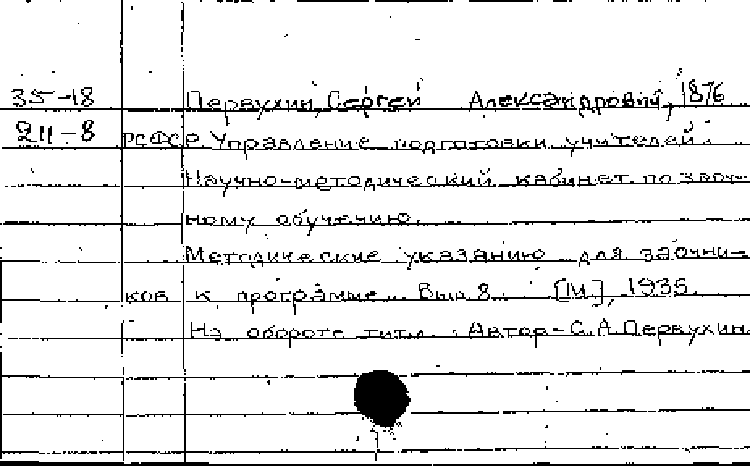 35-18 Первухин, Сергей Александрович, 1876
211-8 РСФСР. Управление подготовки учителей.
Научно-методический кабинет по заоч-
ному обучению.
Методические указанию для заочни-
ков к программе. Вып. 8. [М], 1935.
На обороте титл. Автор-С.А.Первухин.